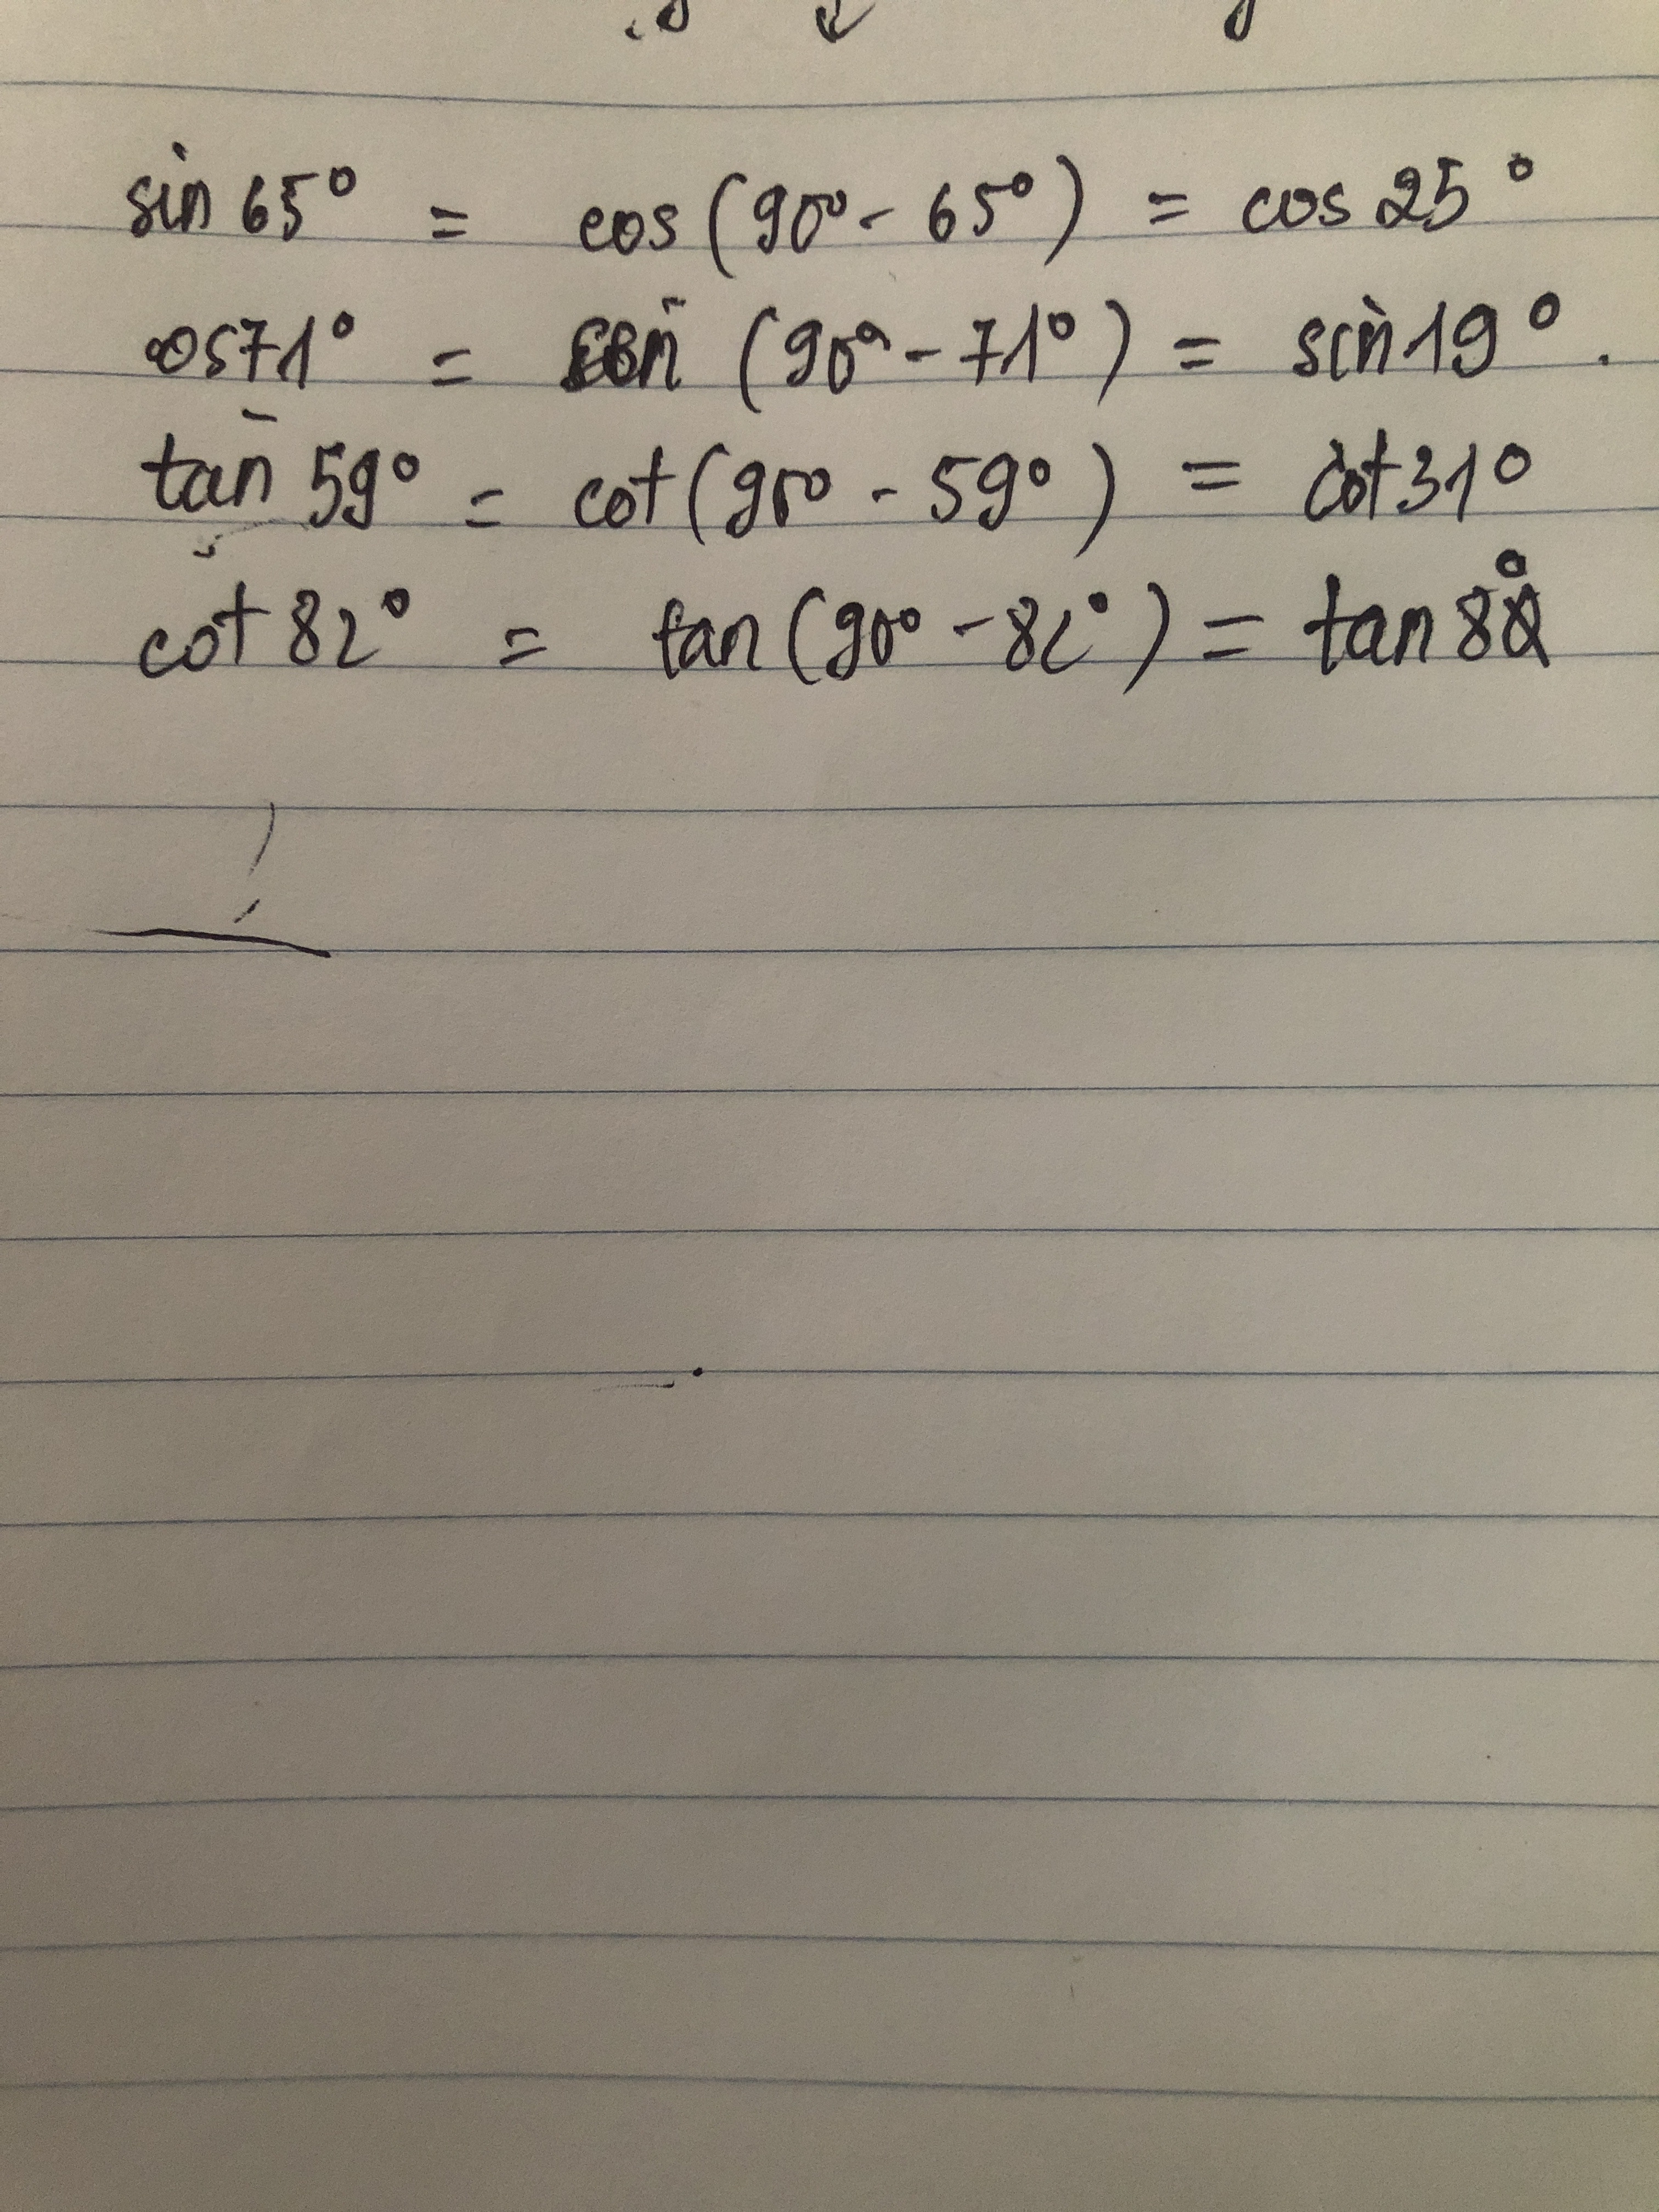 sin 65° = cos (90° - 65°) = cos 25°
cos 71° = sin (90° - 71°) = sin 19°.
tan 59° = cot (90° - 59°) = cot 31°
cot 82° = tan (90° - 82°) = tan 8°